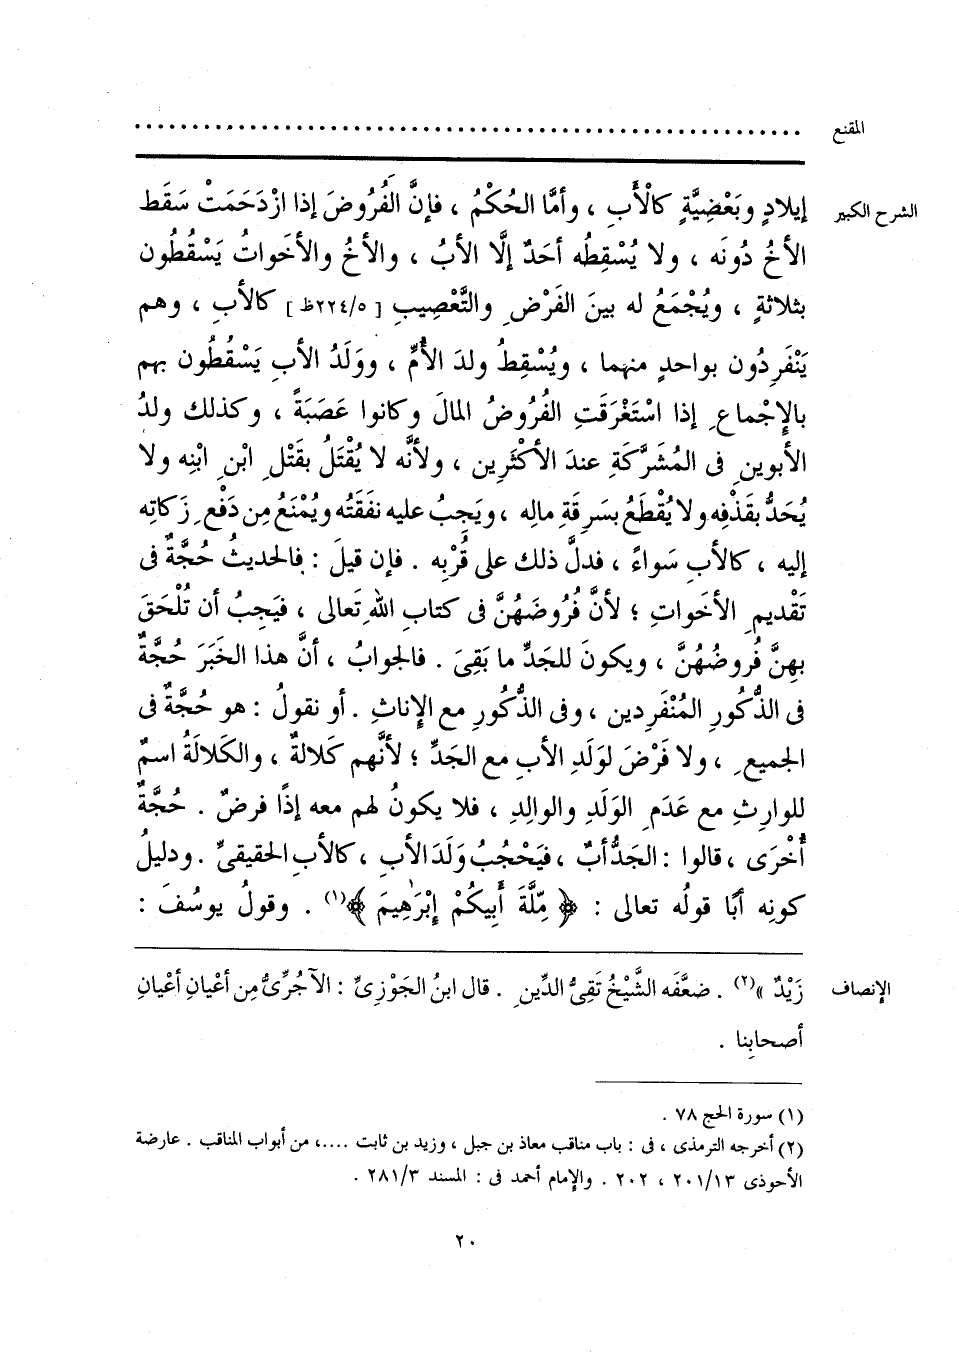 المقنع ..........................................................
الشرح الكبير إيلادٍ وبَعْضِيَّةٍ كالْأَبِ ، وأمَّا الحُكْمُ ، فإنَّ الفُرُوضَ إذا ازْدَحَمَتْ سَقَط
الأخُ دُونَه ، ولا يُسْقِطُه أحَدٌ إلَّا الأبُ ، والأخُ والأخَواتُ يَسْقُطُون
بثلاثةٍ ، ويُجْمَعُ له بينَ الفَرْضِ والتَّعْصِيبِ [ ٢٢٤/٥ظ ] كالأبِ ، وهم
يَنْفَرِدُون بواحدٍ منهما ، ويُسْقِطُ ولدَ الأُمِّ ، ووَلَدُ الأبِ يَسْقُطُون بهم
بالإِجْماعِ إذا اسْتَغْرَقَتِ الفُرُوضُ المالَ وكانوا عَصَبَةً ، وكذلك ولدُ
الأبوينِ فى المُشَرَّكَةِ عندَ الأكْثَرِين ، ولأنَّه لا يُقْتَلُ بقَتْلِ ابْنِ ابْنِه ولا
يُحَدُّ بقَذْفِه ولا يُقْطَعُ بسَرِقَةِ مالِه ، ويَجِبُ عليه نفَقَتُه ويُمْنَعُ مِن دَفْعِ زَكاتِه
إليه ، كالأبِ سَواءً ، فدلَّ ذلك على قُرْبِه . فإن قيلَ : فالحديثُ حُجَّةٌ فى
تَقْديمِ الأخَواتِ ؛ لأنَّ فُرُوضَهُنَّ فى كتابِ اللهِ تَعالى ، فيَجِبُ أن تُلْحَقَ
بهِنَّ فُروضُهُنَّ ، ويكونَ للجَدِّ ما بَقِىَ . فالجوابُ ، أنَّ هذا الخَبَرَ حُجَّةٌ
فى الذُّكُورِ المُنْفَرِدين ، وفى الذُّكُورِ مع الإِناثِ . أو نقولُ : هو حُجَّةٌ فى
الجميعِ ، ولا فَرْضَ لوَلَدِ الأبِ مع الجَدِّ ؛ لأنَّهم كَلالةٌ ، والكَلالَةُ اسمٌ
للوارِثِ مع عَدَمِ الوَلَدِ والوالِدِ ، فلا يكونُ لهم معه إذًا فرضٌ . حُجَّةٌ
أُخْرَى ، قالوا : الجَدُّ أبٌ ، فيَحْجُبُ وَلَدَ الأبِ ، كالأبِ الحقيقىِّ . ودليلُ
كونِه أبًا قولُه تعالى : ﴿ مِّلَّةَ أَبِيكُمْ إِبْرَٰهِيمَ ﴾(١) . وقولُ يوسُفَ :
الإنصاف زَيْدٌ »(٢) . ضعَّفَه الشَّيْخُ تَقِىُّ الدِّينِ . قال ابنُ الجَوْزِىِّ : الآجُرِّىُّ مِن أعْيانِ أعْيانِ
أصحابِنا .
(١) سورة الحج ٧٨ .
(٢) أخرجه الترمذى ، فى : باب مناقب معاذ بن جبل ، وزيد بن ثابت ....، من أبواب المناقب . عارضة
الأحوذى ٢٠١/١٣ ، ٢٠٢ . والإمام أحمد فى : المسند ٢٨١/٣ .
٢٠